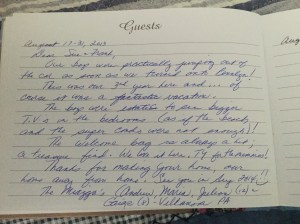 Guests
August 17-31, 2013
Dear Sue + Frank,
Our boys were practically jumping out of
the car as soon as we turned onto
This was our 3rd year here and... of
course it was a fantastic vacation.
The boys were to see bigger
T.V.s in the bedrooms (as if the beach
and the super cards were not enough)!
The welcome bag is always a hit,
a teenage find: We love it here. Ty for the
Thanks for making your home, our
home away from home. See you in Aug 2014!
The (Andrew, Maria, Julian (12) +
(8) - Villanova, PA
Aug